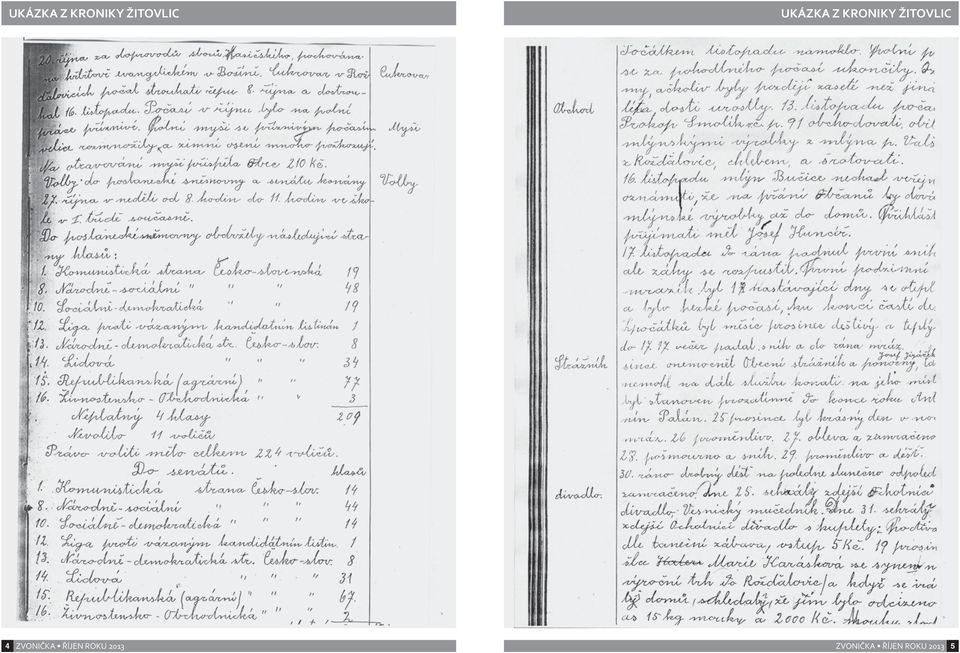 UKÁZKA Z KRONIKY ŽITOVLIC
20. října za doprovodu sboru Hasičského, pochována
na hřbitově evangelickém v Bošíni. Cukrovar v Rož-
ďalovicích počal strouhati řepu 8. října a dostrou-
hal 16. listopadu. Počasí v říjnu bylo na polní
práce příznivé. Polní myši se příznivým počasím
velice rozmnožily a zimní osení mnoho poškozují.
Na otravování myší přispěla Obce 210 Kč.
Volby do poslanecké sněmovny a senátu konány
27. října v neděli od 8. hodin do 11. hodin ve ško-
le v I. třídě současně.
Do poslanecké sněmovny obdržely následující stra-
ny hlasů:
1. Komunistická strana Česko-slovenská 19
8. Národně-sociální " " " 48
10. Sociálně-demokratická " " 19
12. Liga proti vázaným kandidatním listinám 1
13. Národně-demokratická str. Česko-slov. 8
14. Lidová " " " " 34
15. Republikanská (agrární) " " 77
16. Živnostensko-Obchodnická " " 3
Neplatný 4 hlasy 209
Nevolilo 11 voličů
Právo voliti mělo celkem 224 voličů.
Do senátů. hlasů
1. Komunistická strana Česko-slov. 14
8. Národně-sociální " " " 44
10. Sociálně-demokratická " " " 14
12. Liga proti vázaným kandidátním listin. 1
13. Národně-demokratická str. Česko-slov. 8
14. Lidová " " " " 31
15. Republikanská (agrární) " " " 67.
16. Živnostensko-Obchodnická " " " 2
Cukrovar
Myši
Volby
4 ZVONIČKA • ŘÍJEN ROKU 2013
UKÁZKA Z KRONIKY ŽITOVLIC
Obchod
Strážník
divadlo.
Počátkem listopadu namoklo. Polní p
se za pohodlného počasí ukončily.
my, ačkoliv byly později zaseté než jiná
léta, dosti urostly. 13. listopadu poča
Prokop Smolík č. p. 91 obchodovati, obil
mlýnskými výrobky z mlýna p. Vals
z Rožďalovic, chlebem, a šrotovati.
16. listopadu mlýn Bučice nechal veřejn
oznámiti, že na přání Občanů by dová
mlýnské výrobky až do domů. Přihlášk
přijímati měl Josef Huncár.
17. listopadu Do rána padnul první sníh
ale záhy se rozpustil. První podzimní
mrazík byl 17 nastávající dny se otepl
a bylo hezké počasí, ku konci častí de
Zpočátků byl měsíc prosinec deštivý a teplý.
do 17. 17 večer padal sníh a do rána mráz.
since onemocněl Obecní strážník a ponocný,
Josef
nemohl na dále službu konati. na jeho míst
byl stanoven prozatímně do konce roku Ant
nín Palán. 25 prosince byl krásný den v no-
mráz. 26 proměnlivo. 27. obleva a zamračeno
28. pošmourno a sníh. 29. proměnlivo a déšť.
30. ráno drobný déšť na poledne slunečno odpoled
zamračeno. Dne 25. sehrály zdejší Ochotníci
divadlo Vesnický mučedník. Dne 31. sehrály
zdejší Ochotníci divadlo s kuplety: Podtíva
dle taneční zábava, vstup 5 Kč. 19 prosin
šla Marie Karásková se synem
výroční trh Do Rožďalovic a když se vrá
tily domů, shledaly, že jim bylo odcizeno
as 15 kg mouky a 2000 Kč.
ZVONIČKA • ŘÍJEN ROKU 2013 5